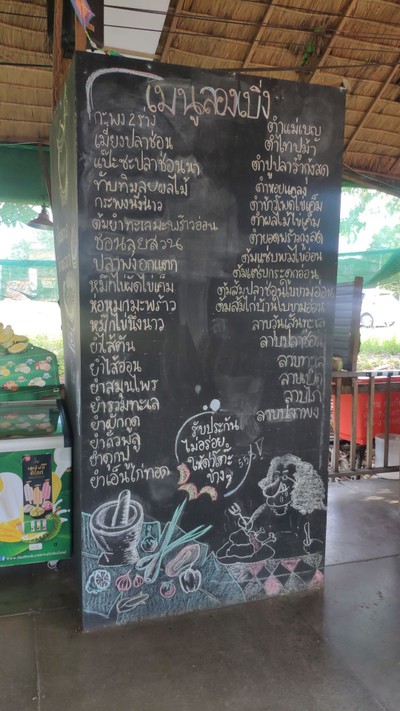 เมนูลองเบิ่ง
กะพง 2 ร่าง
เมี่ยงปลาช่อน
แป๊ะซะปลาช่อนนา
ทับทิมลุยผลไม้
กะพงนึ่งนาว
ต้มยำทะเลมะพร้าวอ่อน
ช่อนลุยสวน
ปลาพงอกแตก
หมึกไข่ผัดไข่เค็ม
ห่อหมกมะพร้าว
หมึกไข่นึ่งนาว
ยำไส้ตัน
ยำไส้อ่อน
ยำสมุนไพร
ยำรวมทะเล
ยำผักกูด
ยำถั่วพลู
ยำเอ็นไก่ทอด
ตำแม่เบญ
ตำไทปูม้า
ตำปูปลาร้ากุ้งสด
ตำหอยแครง
ตำข้าวโพดไข่เค็ม
ตำผลไม้ไข่เค็ม
ต้มแซ่บกระดูกอ่อน
ต้มส้มปลาช่อนใบขามอ่อน
ต้มส้มไก่บ้านใบขามอ่อน
ลาบวุ้นเส้นทะเล
ลาบปลาช่อน
ลาบทะเล
ลาบเป็ด
ลาบไก่
ลาบปลาพง
รับประกัน
ไม่อร่อย
ให้คว่ำโต๊ะ
ข้างๆ